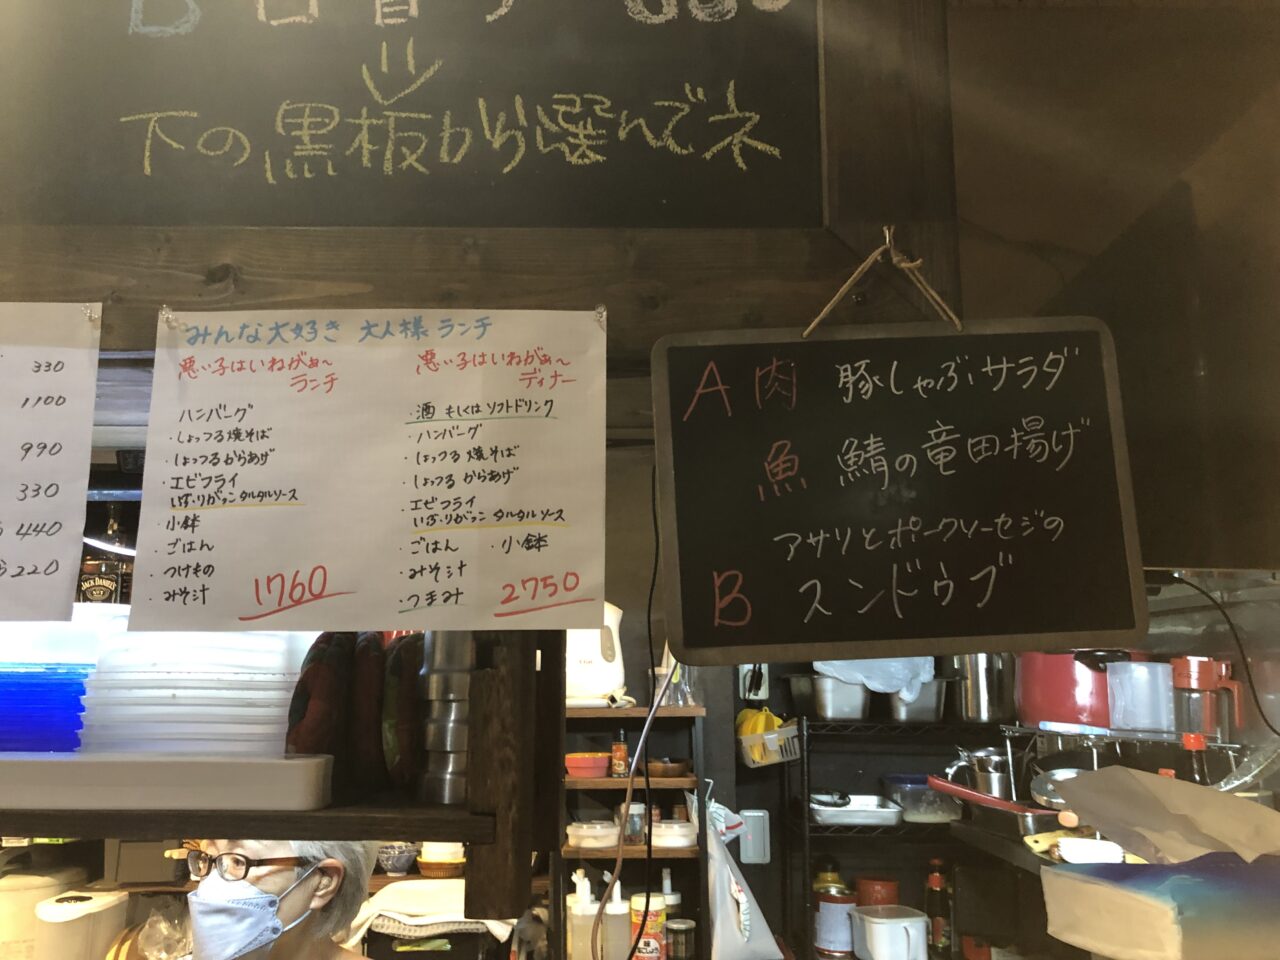 B 日替り
下の黒板から選んでネ
330
1100
990
330
440
220
みんな大好き 大人様ランチ
悪い子はいねがぁ〜
ランチ
ハンバーグ
・しょっつる焼そば
・しょっつるからあげ
・エビフライ
いぶりがっこタルタルソース
・小鉢
・ごはん
・つけもの
・みそ汁
1760
悪い子はいねがぁ〜
ディナー
・酒 もしくは ソフトドリンク
・ハンバーグ
・しょっつる焼そば
・しょっつるからあげ
・エビフライ
いぶりがっこ タルタルソース
・ごはん ・小鉢
・みそ汁
・つまみ
2750
A 肉 豚しゃぶサラダ
魚 鯖の竜田揚げ
アサリとポークソーセジの
B スンドゥブ
JACK DANIEL'S